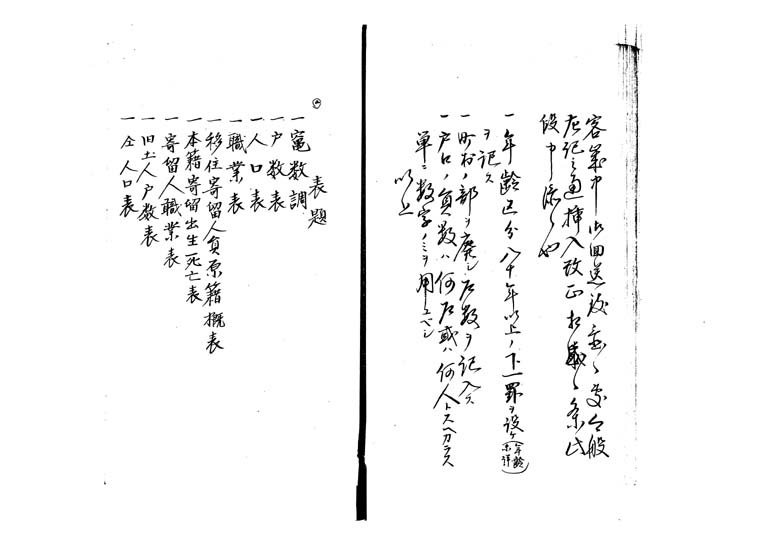 客業中御回送致置候処今般
左記之通挿入改正相成候条此
段申添候也
一年齢区分八十年以上ノ下一罫ヲ設ケ(年齢未詳)
ヲ記ス
一町村ノ部ヲ廃シ戸数ヲ記入ス
一戸口ノ員数ハ何戸或ハ何人トスヘカラス
単ニ数字ノミヲ用ユベシ
以上
表題
一竈数調
一戸数表
一人口表
一職業表
一移住寄留人員原籍概表
一本籍寄留出生死亡表
一寄留人職業表
一旧土人戸数表
一仝人口表